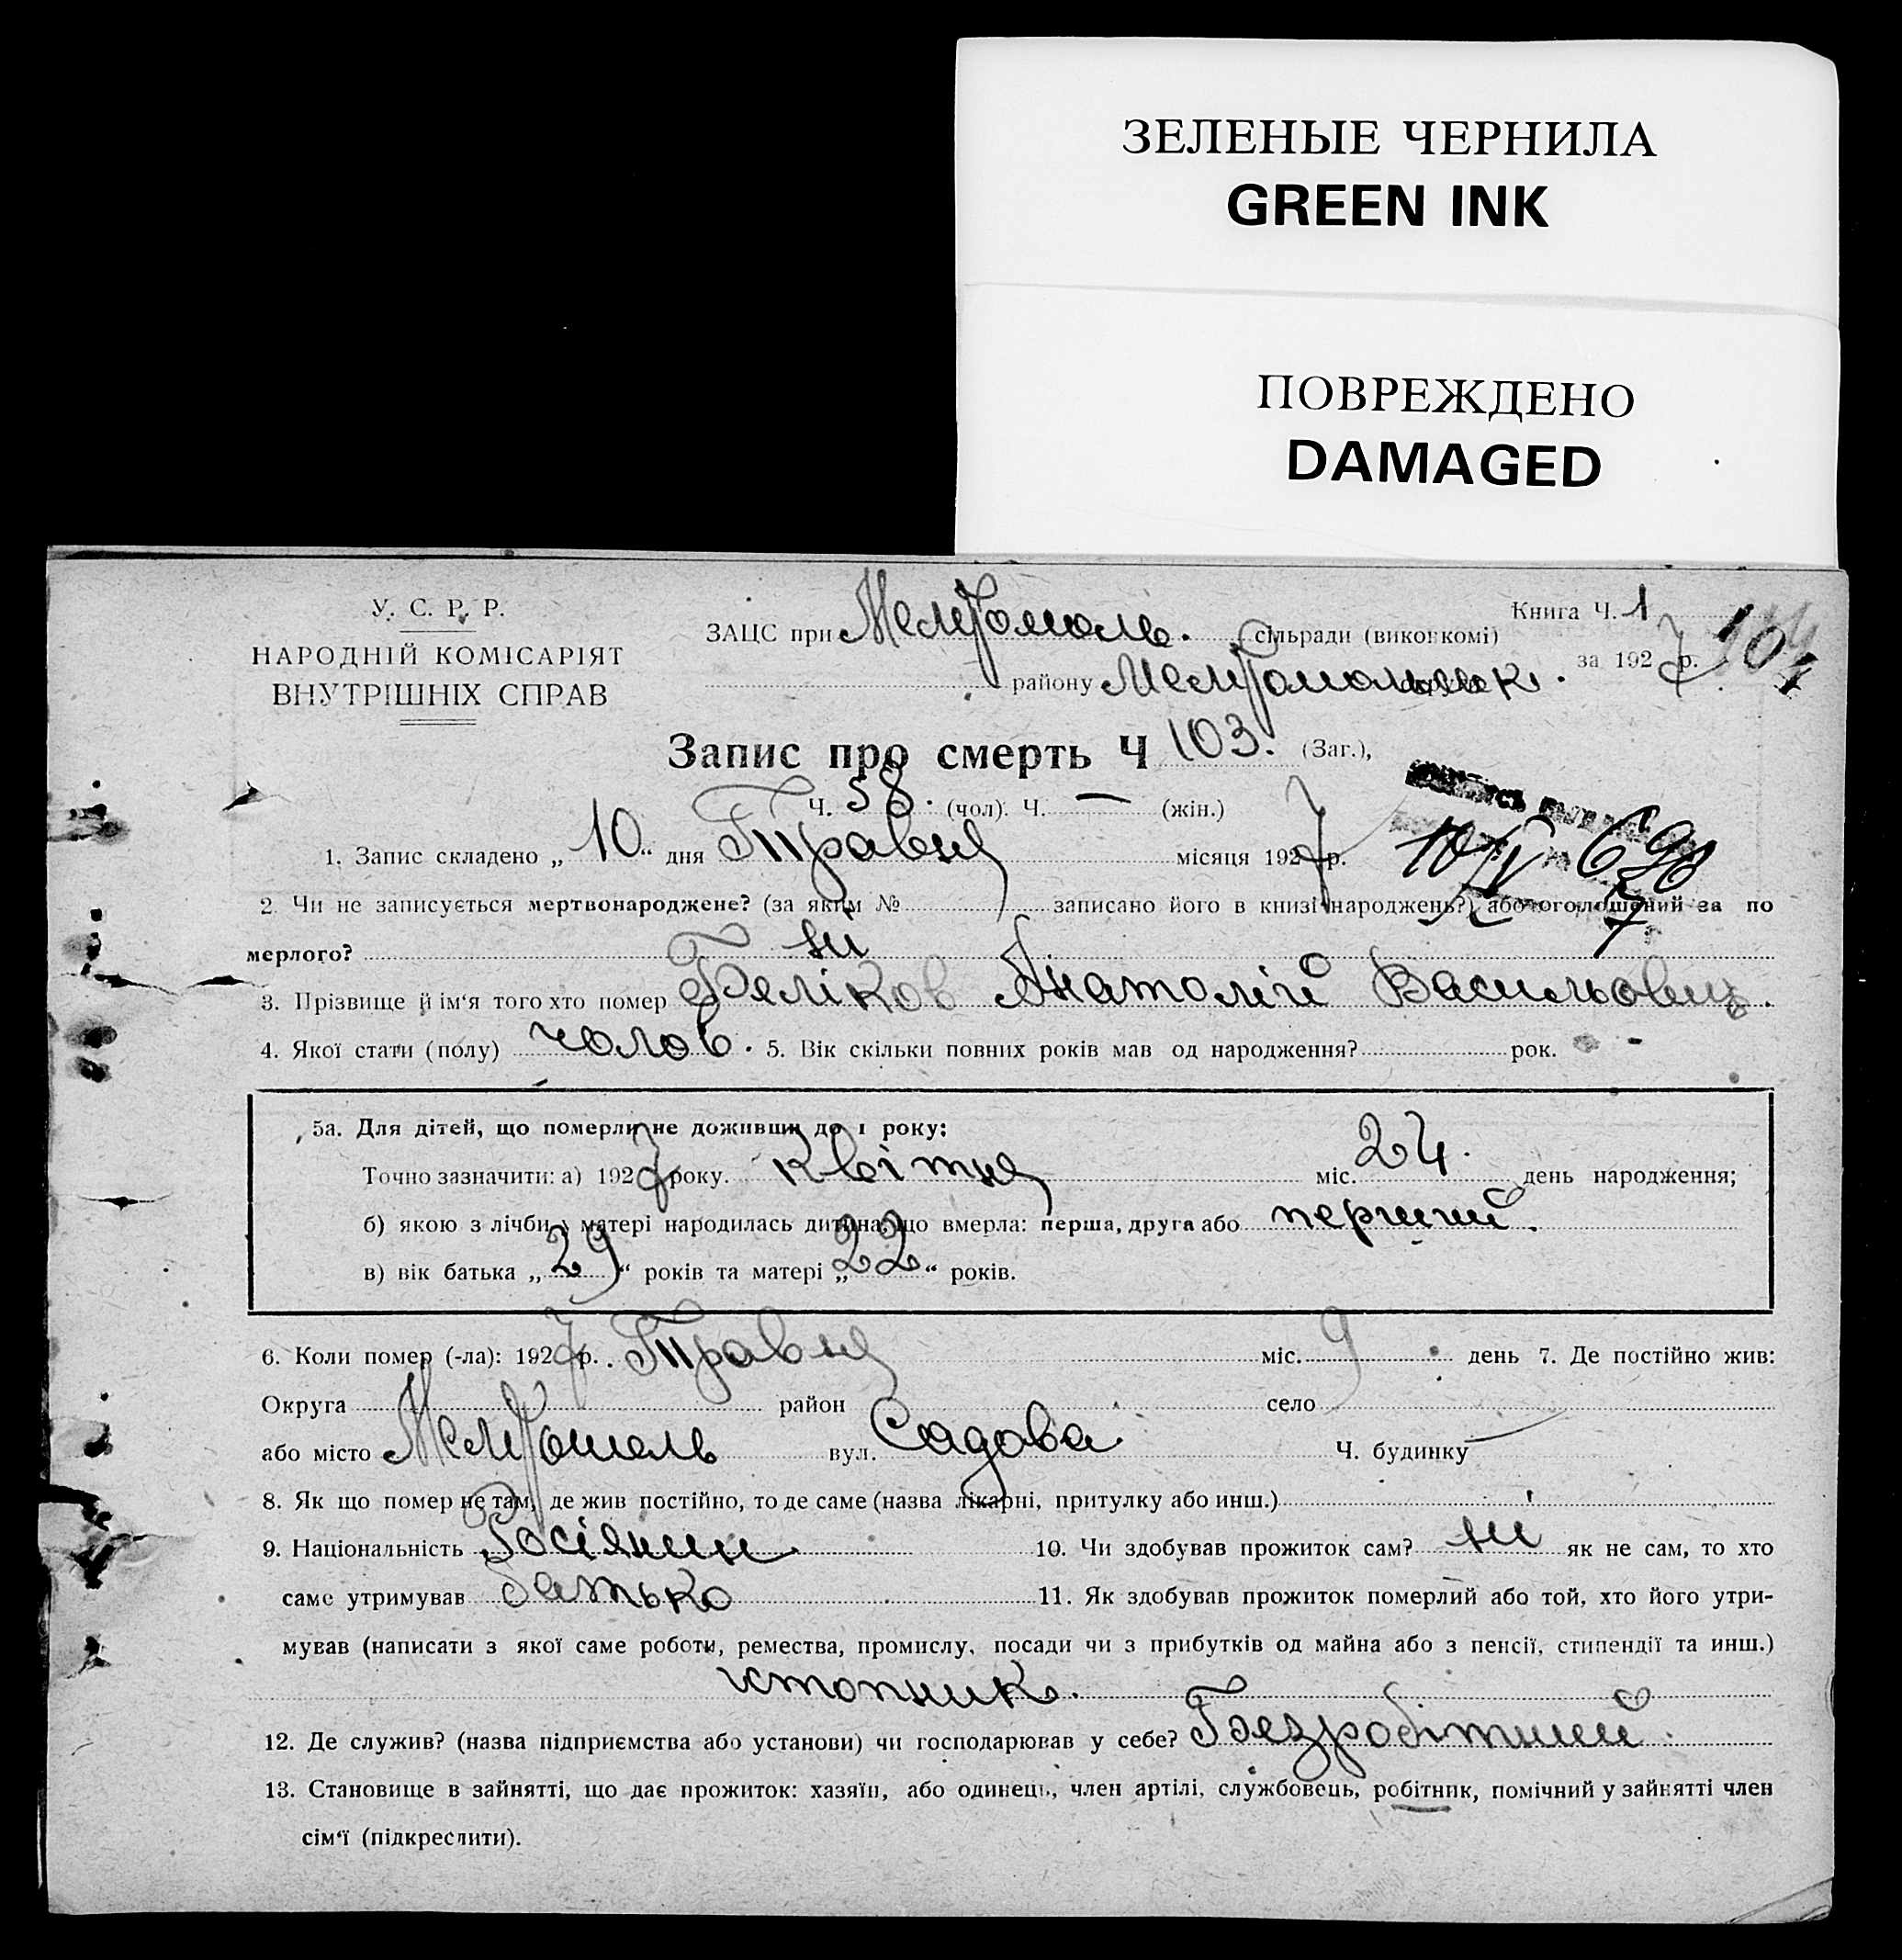 ЗЕЛЕНЫЕ ЧЕРНИЛА
GREEN INK
ПОВРЕЖДЕНО
DAMAGED
У. С. Р. Р.
НАРОДНІЙ КОМІСАРІЯТ
ВНУТРІШНІХ СПРАВ
Книга Ч. 1
104
ЗАЦС при Мелітополь. сільради (виконкомі)
за 1927 р.
району Мелітопольськ.
Запис про смерть Ч 103. (Заг.),
Ч. 58. (чол). Ч. — (жін.)
1. Запис складено „10“ дня Травня місяця 1927 р.
10/V
2. Чи не записується мертвонароджене? (за яким № записано його в книзі народжень?) або оголошений за по
мерлого? ні
3. Прізвище й ім'я того хто помер Беліков Анатолій Васильович.
4. Якої стати (полу) чолов. 5. Вік скільки повних років мав од народження? рок. -
5а. Для дітей, що померли не доживши до 1 року:
Точно зазначити: а) 1927 року. Квітня міс. 24. день народження;
б) якою з лічби у матері народилась дитина, що вмерла: перша, друга або перший.
в) вік батька „29“ років та матері „22“ років.
6. Коли помер (-ла): 1927 р. Травня міс. 9 день 7. Де постійно жив:
Округа район село
або місто Мелітополь вул. Садова Ч. будинку —
8. Як що помер не там, де жив постійно, то де саме (назва лікарні, притулку або инш.)
9. Національність Росіянин 10. Чи здобував прожиток сам? ні як не сам, то хто
саме утримував батько 11. Як здобував прожиток померлий або той, хто його утри-
мував (написати з якої саме роботи, ремества, промислу, посади чи з прибутків од майна або з пенсії, стипендії та инш.)
истопник.
12. Де служив? (назва підприємства або установи) чи господарював у себе? Безробітний.
13. Становище в зайнятті, що дає прожиток: хазяїн, або одинець, член артілі, службовець, робітник, помічний у зайнятті член
сім'ї (підкреслити).